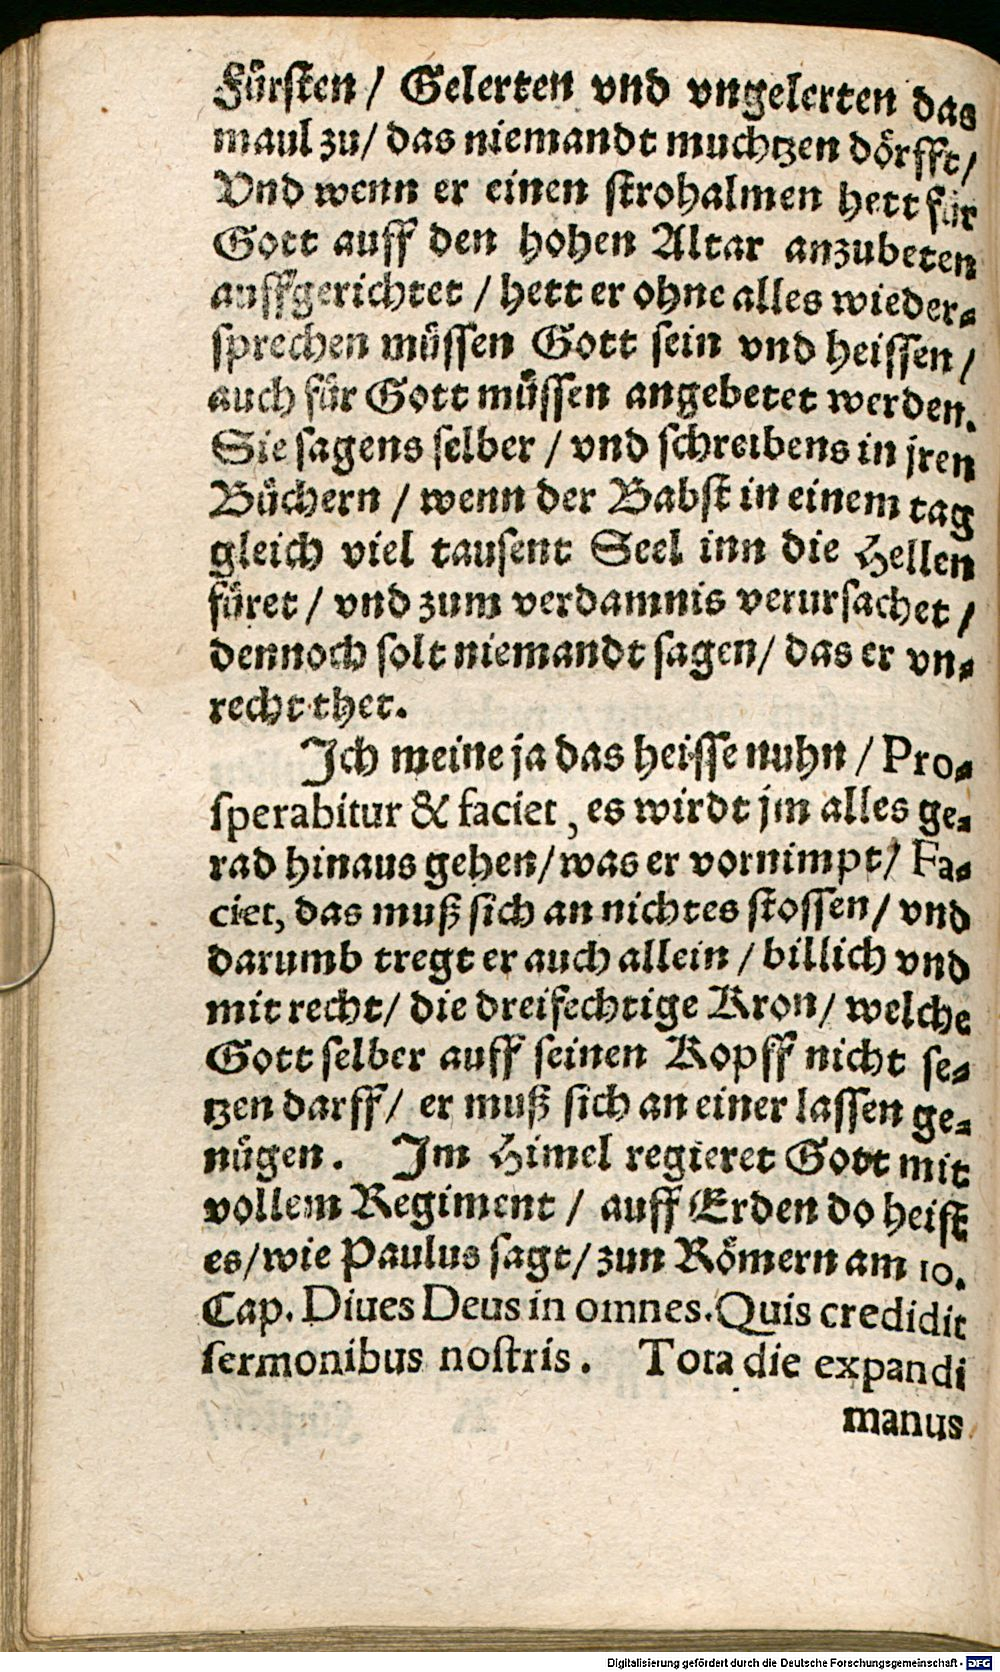 Fürsten / Gelerten vnd vngelerten das
maul zu/ das niemandt muchtzen dörfft/
Vnd wenn er einen strohalmen hett für
Gott auff den hohen Altar anzubeten
auffgerichtet / hett er ohne alles wieder-
sprechen müssen Gott sein vnd heissen /
auch für Gott müssen angebetet werden.
Sie sagens selber / vnd schreibens in jren
Büchern / wenn der Babst in einem tag
gleich viel tausent Seel inn die Hellen
füret / vnd zum verdamnis verursachet /
dennoch solt niemandt sagen/ das er vn-
recht thet.
Ich meine ja das heisse nuhn / Pro-
sperabitur & faciet, es wirdt jm alles ge-
rad hinaus gehen/ was er vornimpt/ Fa-
ciet, das muß sich an nichtes stossen/ vnd
darumb tregt er auch allein / billich vnd
mit recht/ die dreifechtige Kron/ welche
Gott selber auff seinen Kopff nicht se-
tzen darff/ er muß sich an einer lassen ge-
nügen. Im Himel regieret Gott mit
vollem Regiment / auff Erden do heist
es/ wie Paulus sagt/ zun Römern am 10.
Cap. Diues Deus in omnes. Quis credidit
sermonibus nostris. Tota die expandi
manus
Digitalisierung gefördert durch die Deutsche Forschungsgemeinschaft - DFG